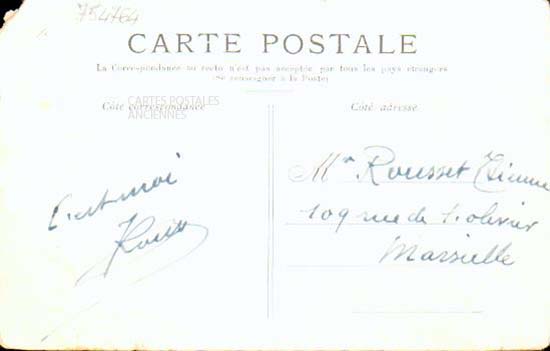 754764
CARTE POSTALE
La Correspondance au recto n'est pas acceptée par tous les pays étrangers
(Se renseigner à la Poste)
Côté correspondance
Côté adresse
CARTES POSTALES
ANCIENNES
C'est moi
Mr Rousset Etienne
109 rue de l'olivier
Marseille